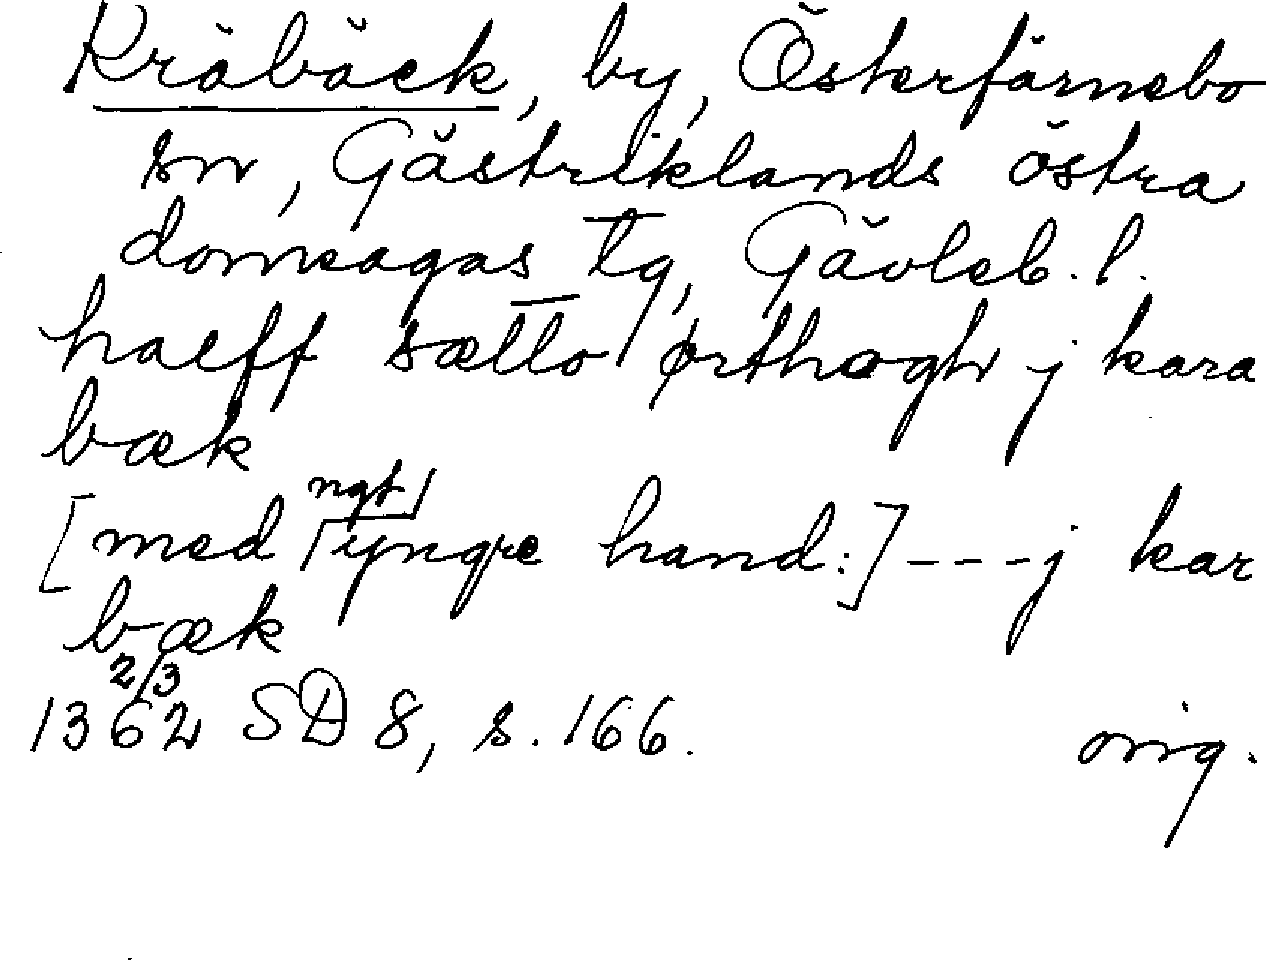 Kräbäck, by, Österfärnebo
sn, Gästriklands östra
domsagas tg, Gävleb. l.
halff sætto ørthogh j kara
bæk
[med ngt yngre hand:] --- j kar
bæk
1362 2/3 SD 8, s. 166. orig.